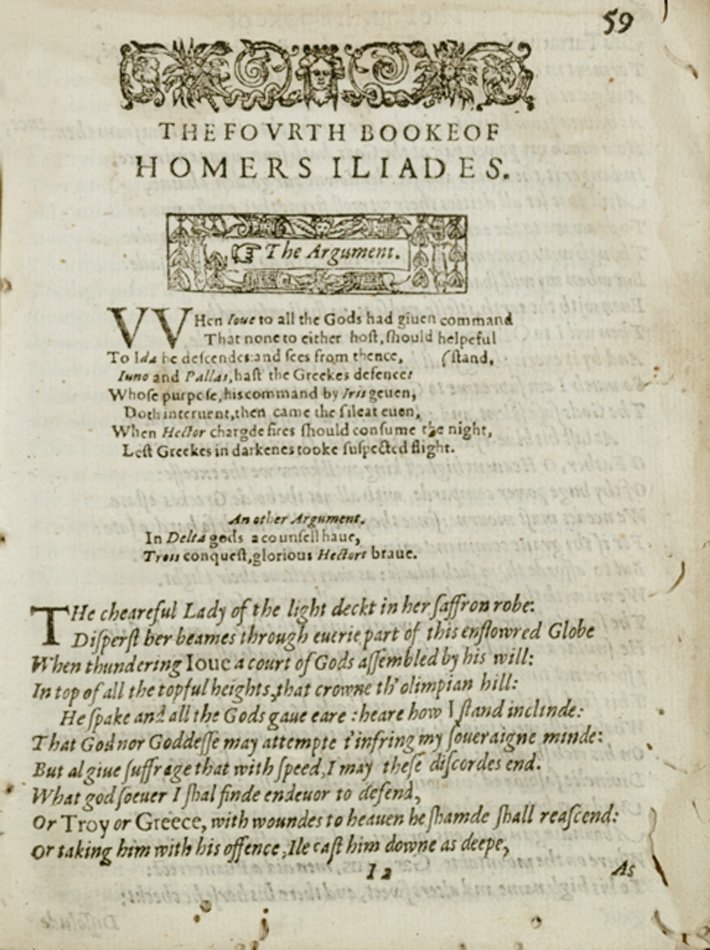 59
THE FOVRTH BOOKE OF
HOMERS ILIADES.
The Argument.
VVHen Ioue to all the Gods had giuen command
That none to either host, should helpeful
To Ida he descendes: and sees from thence, (stand,
Iuno and Pallas, hast the Greekes defence:
Whose purpose, his command by Iris geuen,
Doth interuent, then came the silent euen,
When Hector chargde fires should consume the night,
Lest Greekes in darkenes tooke suspected flight.
An other Argument.
In Delta gods a counsell haue,
Trois conquest, glorious Hectors braue.
THe chearefull Lady of the light deckt in her saffron robe:
Disperst her beames through euerie part of this enflowred Globe
When thundering Ioue a court of Gods assembled by his will:
In top of all the topful heights, that crowne th' olimpian hill:
He spake and all the Gods gaue eare: heare how I stand inclinde:
That God nor Goddesse may attempte t'infring my soueraigne minde:
But al giue suffrage that with speed, I may these discordes end.
What god soeuer I shal finde endeuor to defend,
Or Troy or Greece, with woundes to heauen he shamde shall reascend:
Or taking him with his offence, Ile cast him downe as deepe,
I 2
As